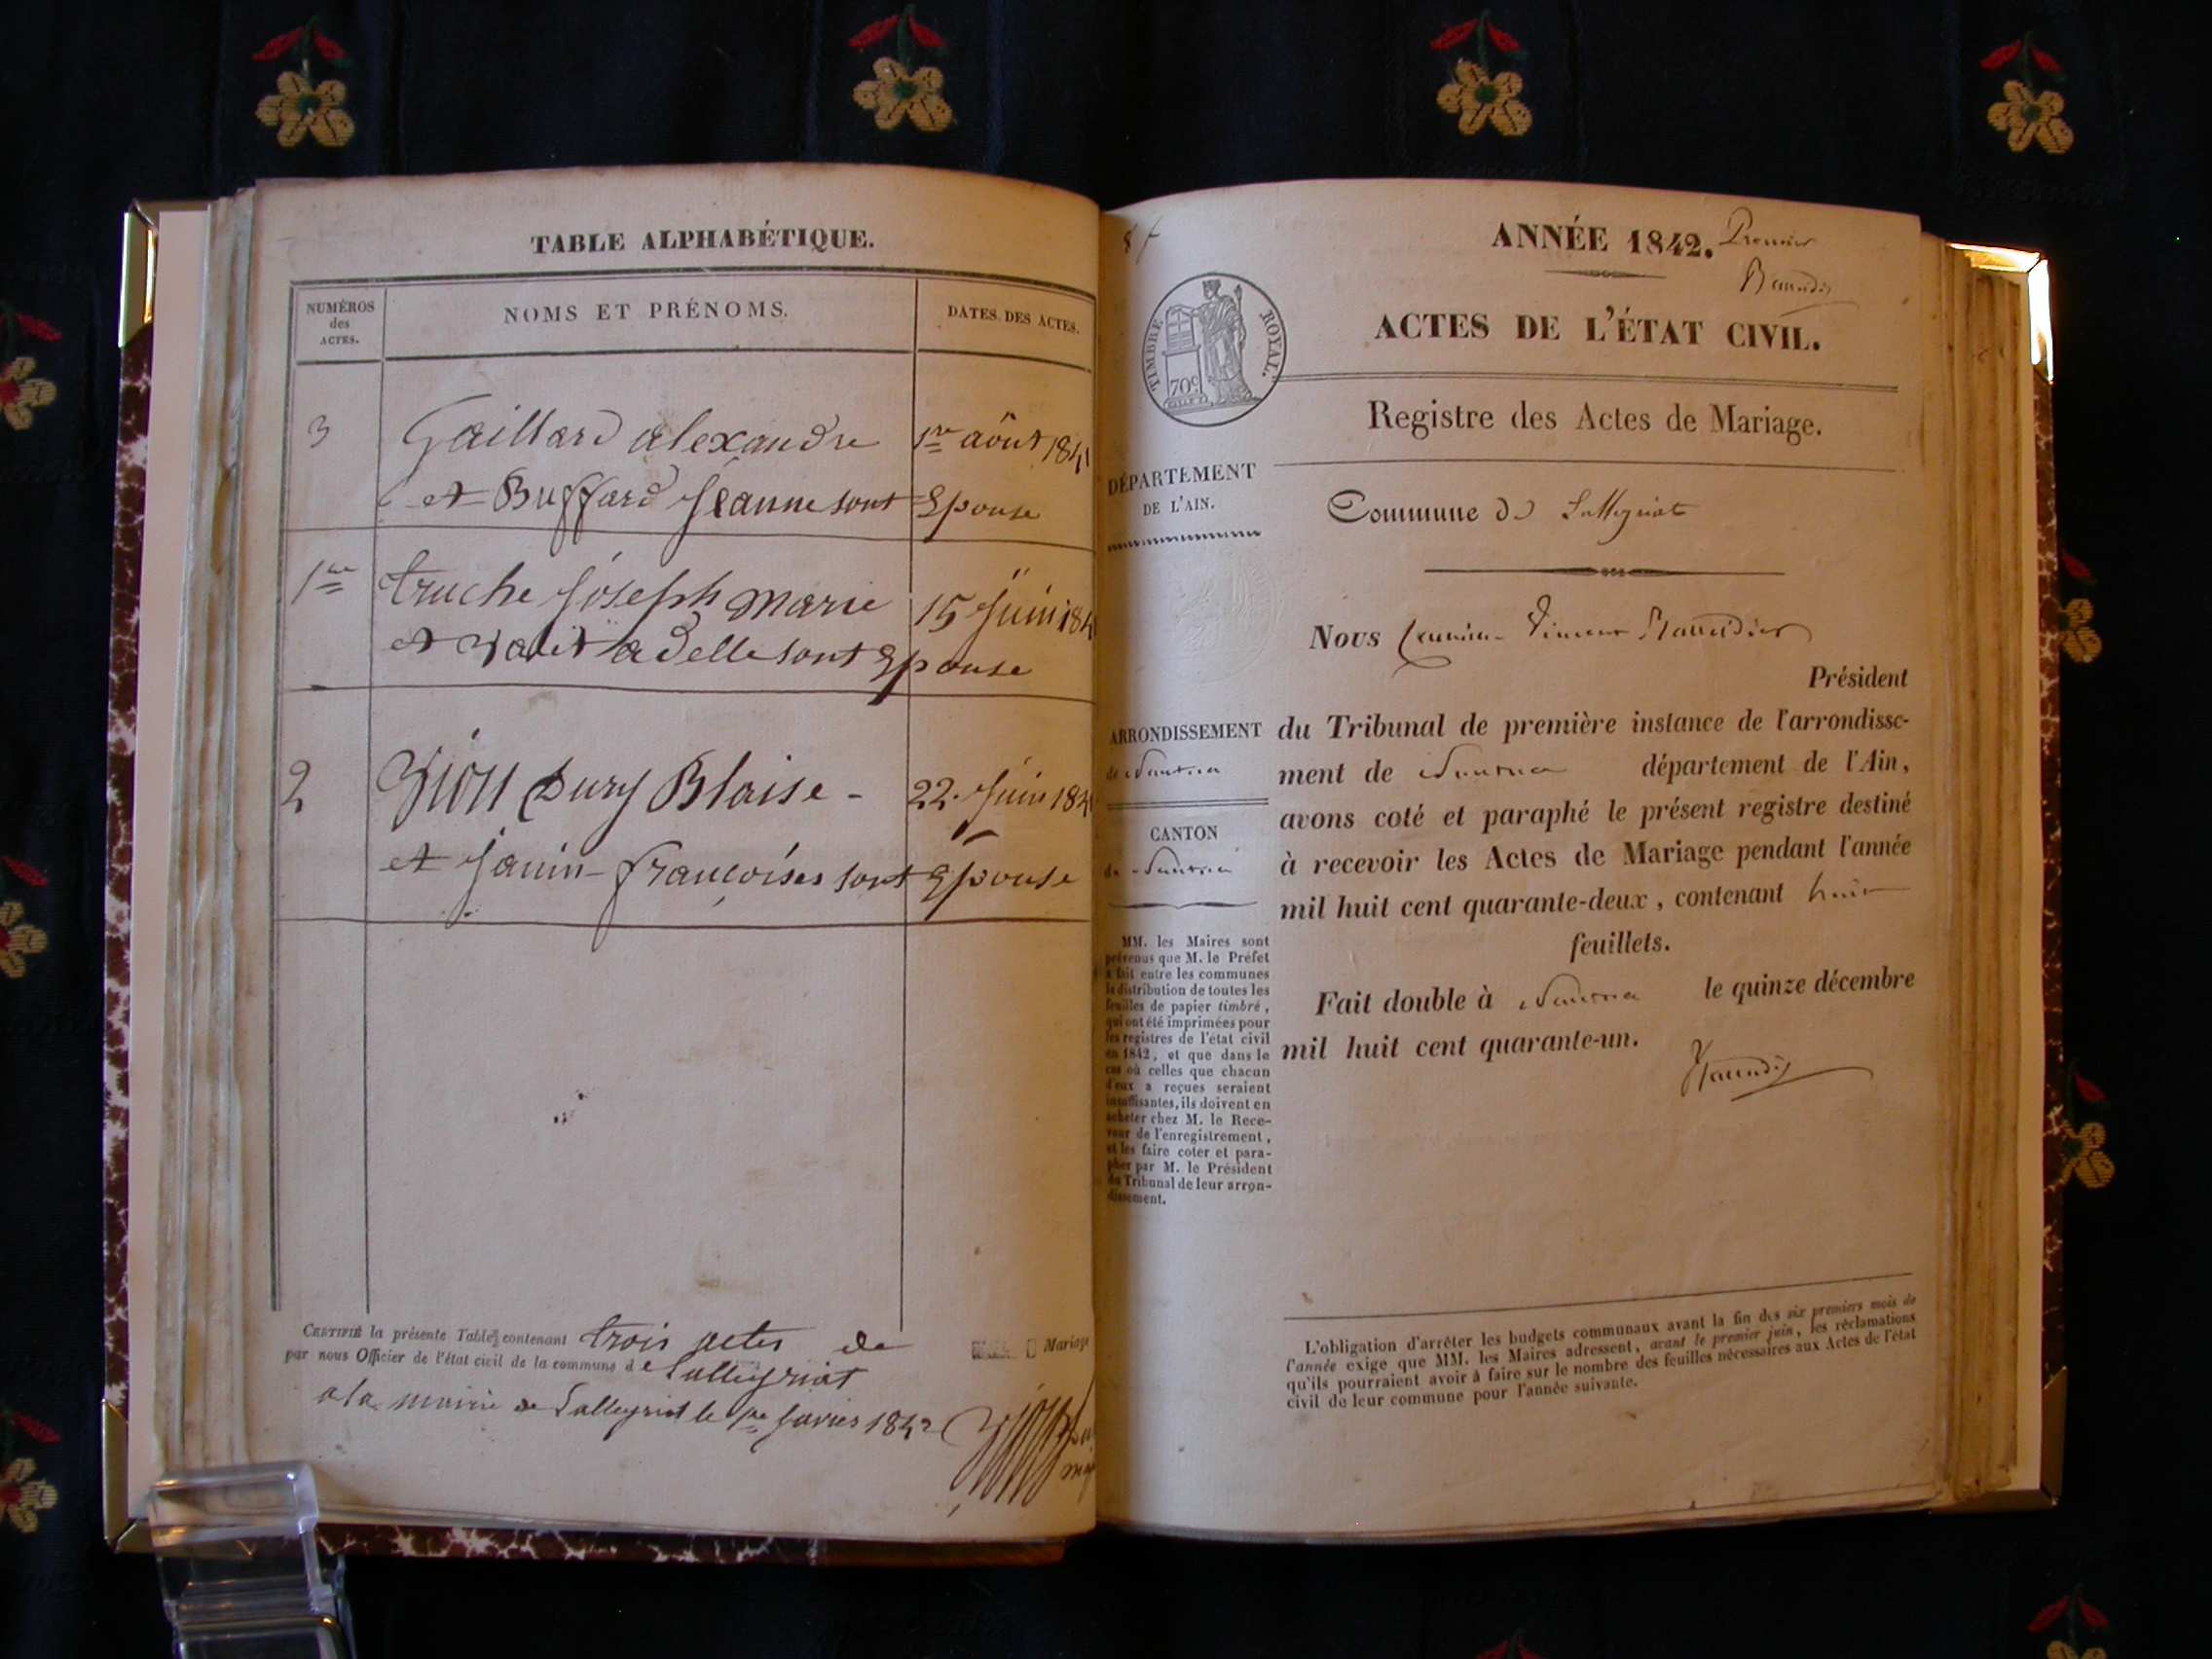 TABLE ALPHABÉTIQUE.
NUMÉROS
des
ACTES.
NOMS ET PRÉNOMS.
DATES DES ACTES.
3 Gaillard alexandre 1re août 1841
et Buffard Jeanne sont Epouse
1re truche Joseph marie 15 Juin 184
et adelle sont Epouse
2 Dury Blaise - 22 Juin 184
et Janin françoises sont Epouse
CERTIFIÉ la présente Table contenant trois actes de Mariage
par nous Officier de l'état civil de la commune de Lalleyriat
a la mairie de Lalleyriat le 1re Janvier 1842
ANNÉE 1842. Premier
ACTES DE L'ÉTAT CIVIL.
TIMBRE ROYAL.
70c
Registre des Actes de Mariage.
DÉPARTEMENT
DE L'AIN.
Commune de Lalleyriat
Nous
Président
ARRONDISSEMENT
de Nantua
CANTON
de Nantua
du Tribunal de première instance de l'arrondisse-
ment de Nantua département de l'Ain,
avons coté et paraphé le présent registre destiné
à recevoir les Actes de Mariage pendant l'année
mil huit cent quarante-deux, contenant huit
feuillets.
Fait double à Nantua le quinze décembre
mil huit cent quarante-un.
MM. les Maires sont
prévenus que M. le Préfet
a fait entre les communes
la distribution de toutes les
feuilles de papier timbré,
qui ont été imprimées pour
les registres de l'état civil
en 1842, et que dans le
cas où celles que chacun
d'eux a reçues seraient
insuffisantes, ils doivent en
acheter chez M. le Rece-
veur de l'enregistrement,
et les faire coter et para-
pher par M. le Président
du Tribunal de leur arron-
dissement.
L'obligation d'arrêter les budgets communaux avant la fin des six premiers mois de
l'année exige que MM. les Maires adressent, avant le premier juin, les réclamations
qu'ils pourraient avoir à faire sur le nombre des feuilles nécessaires aux Actes de l'état
civil de leur commune pour l'année suivante.